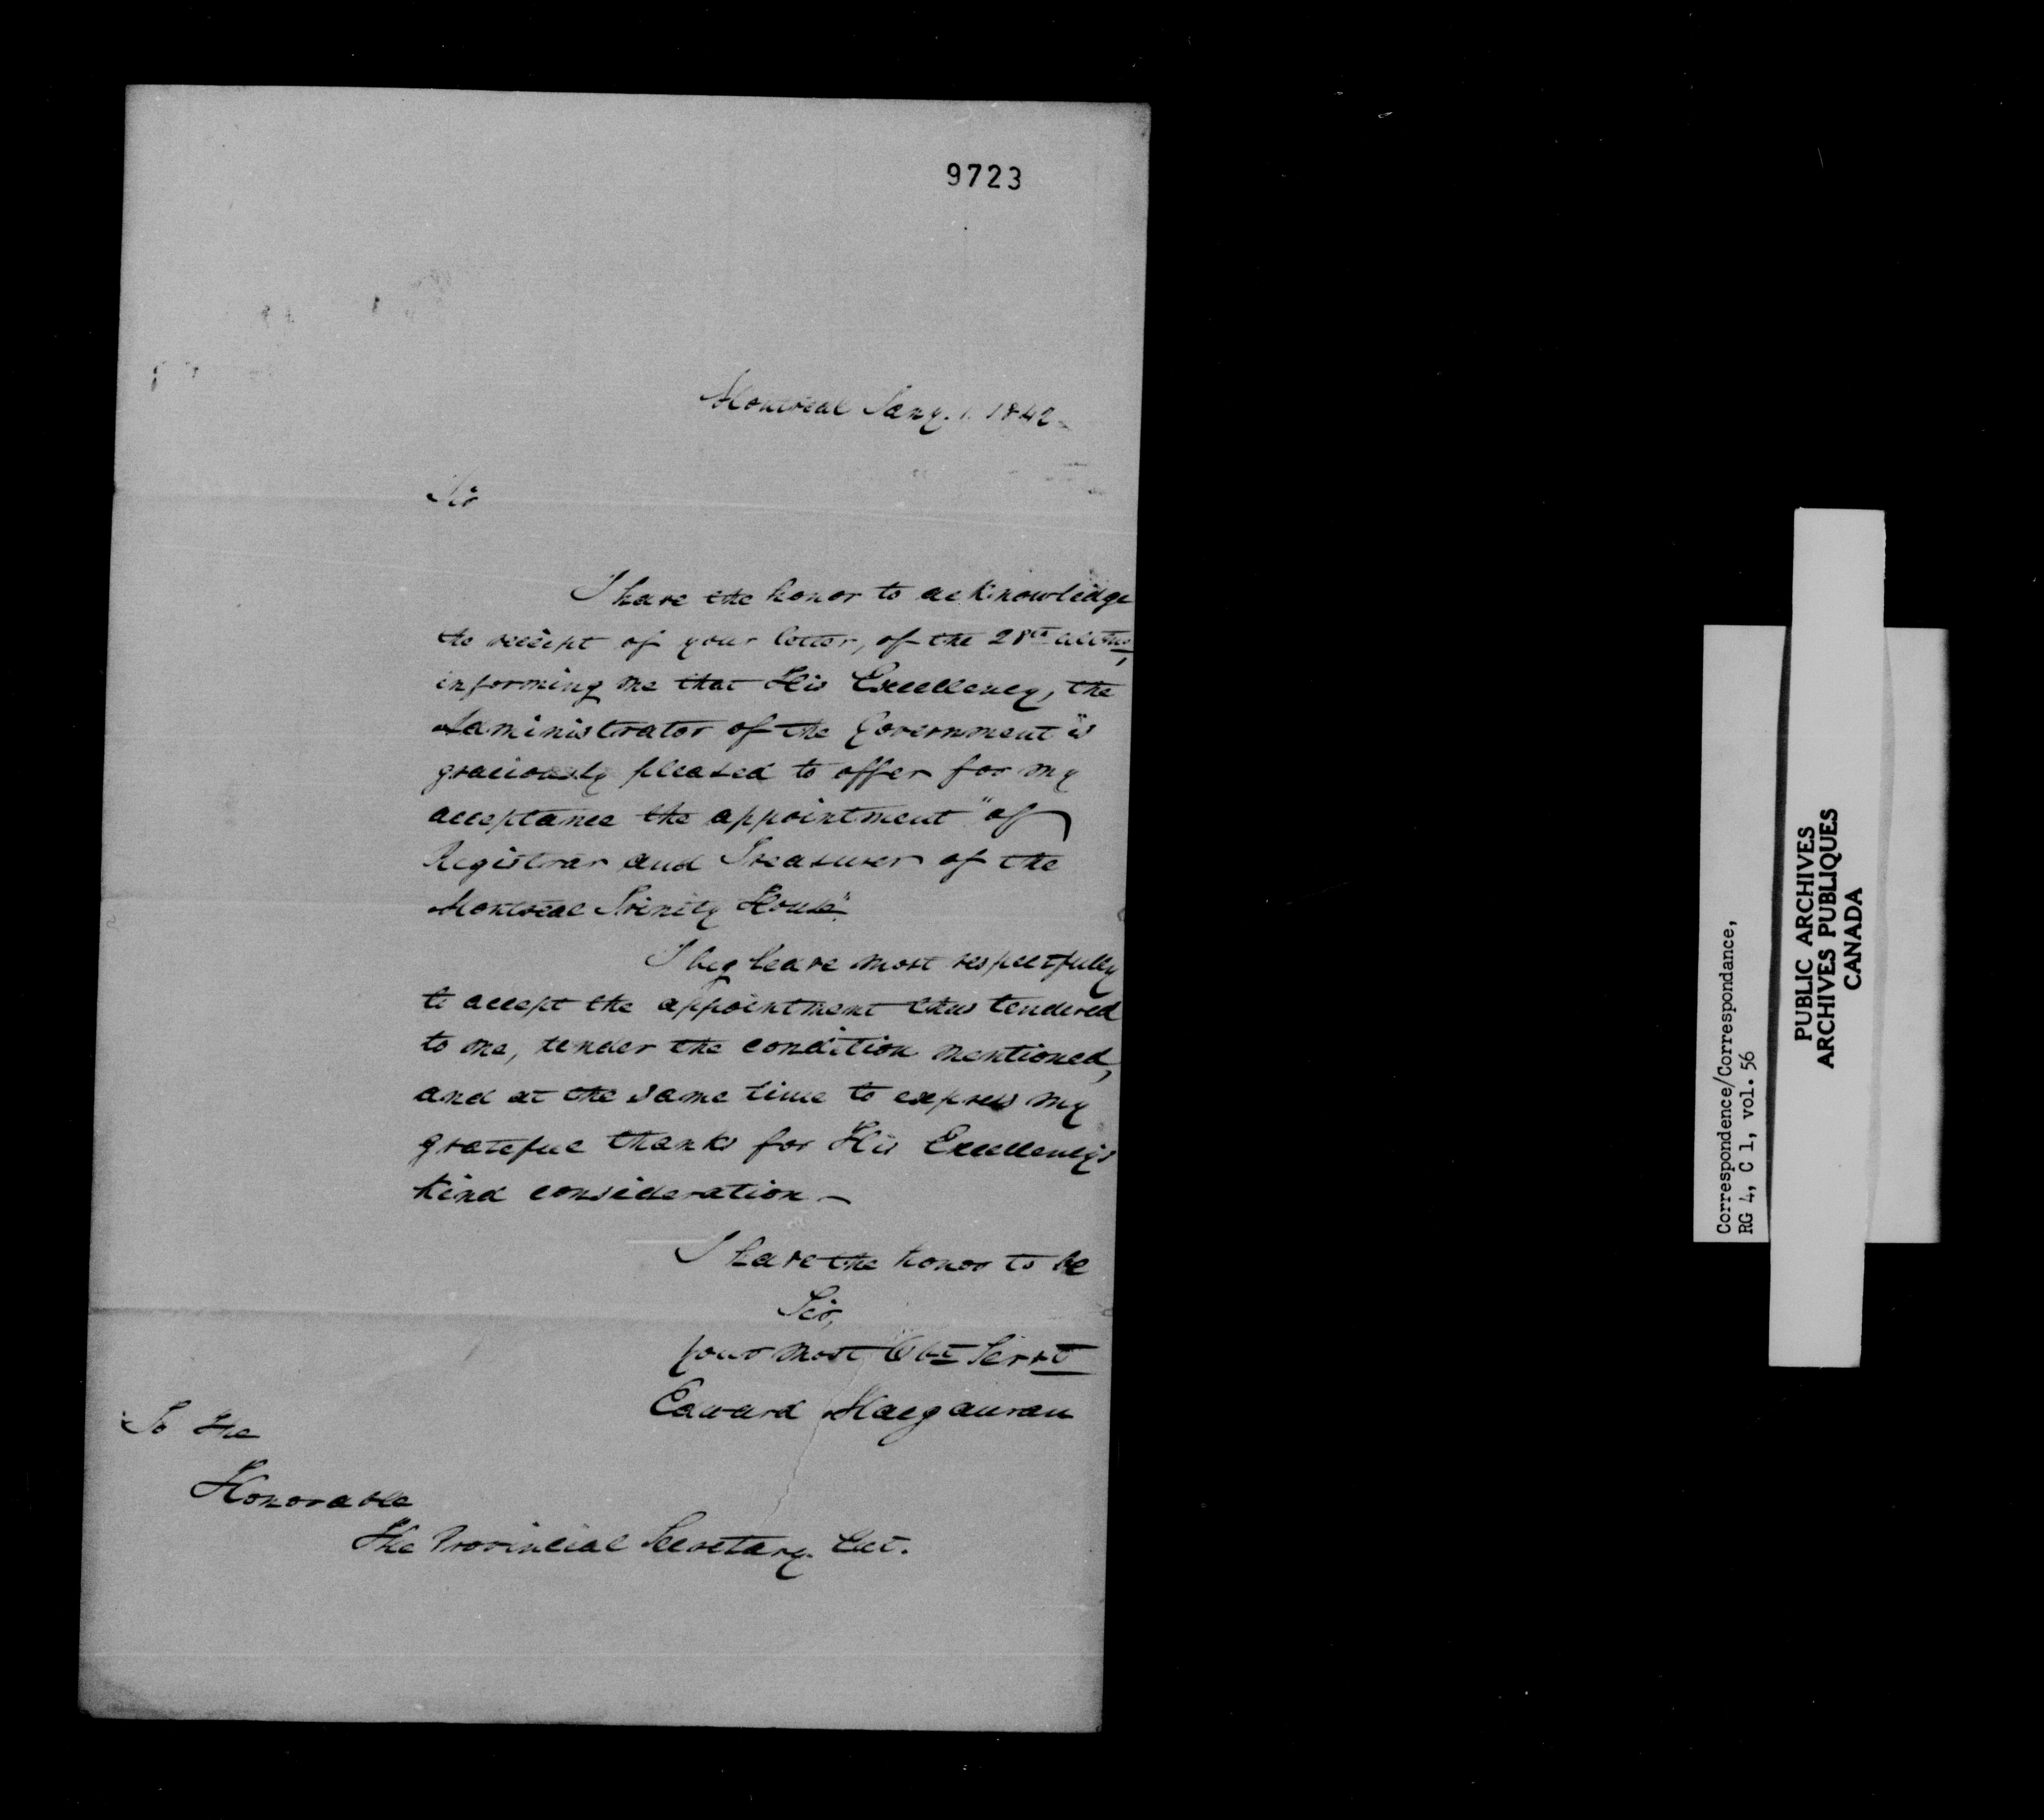 9723
Montreal Jany. 1. 1842
Sir
I have the honor to acknowledge
the receipt of your letter, of the 28th ultmo,
informing me that His Excellency, the
Administrator of the Government "is
graciously pleased to offer for my
acceptance the appointment "of
Registrar and Treasurer of the
Montreal Trinity House".
I beg leave most respectfully
to accept the appointment thus tendered
to me, under the condition mentioned,
and at the same time to express my
grateful thanks for His Excellency's
kind consideration —
I have the honor to be
Sir,
Your most Obt Servt
Edward Macgauran
To the
Honorable
The Provincial Secretary
Correspondence/Correspondance,
RG 4, C 1, vol. 56
PUBLIC ARCHIVES
ARCHIVES PUBLIQUES
CANADA